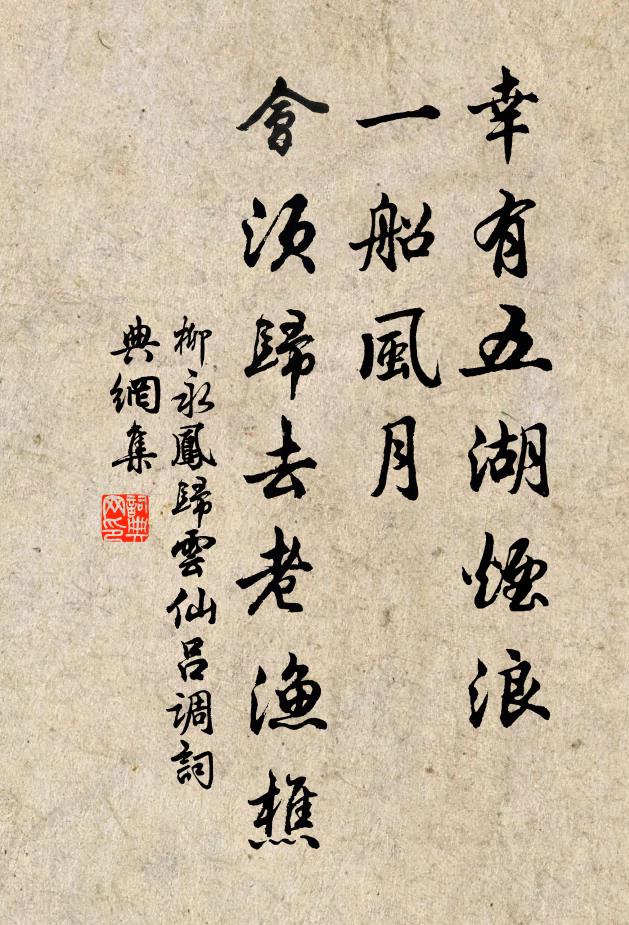 幸有五湖煙浪
一船風月
會須歸去老漁樵
柳永鳳歸雲仙呂調詞
典網集
詞典網印